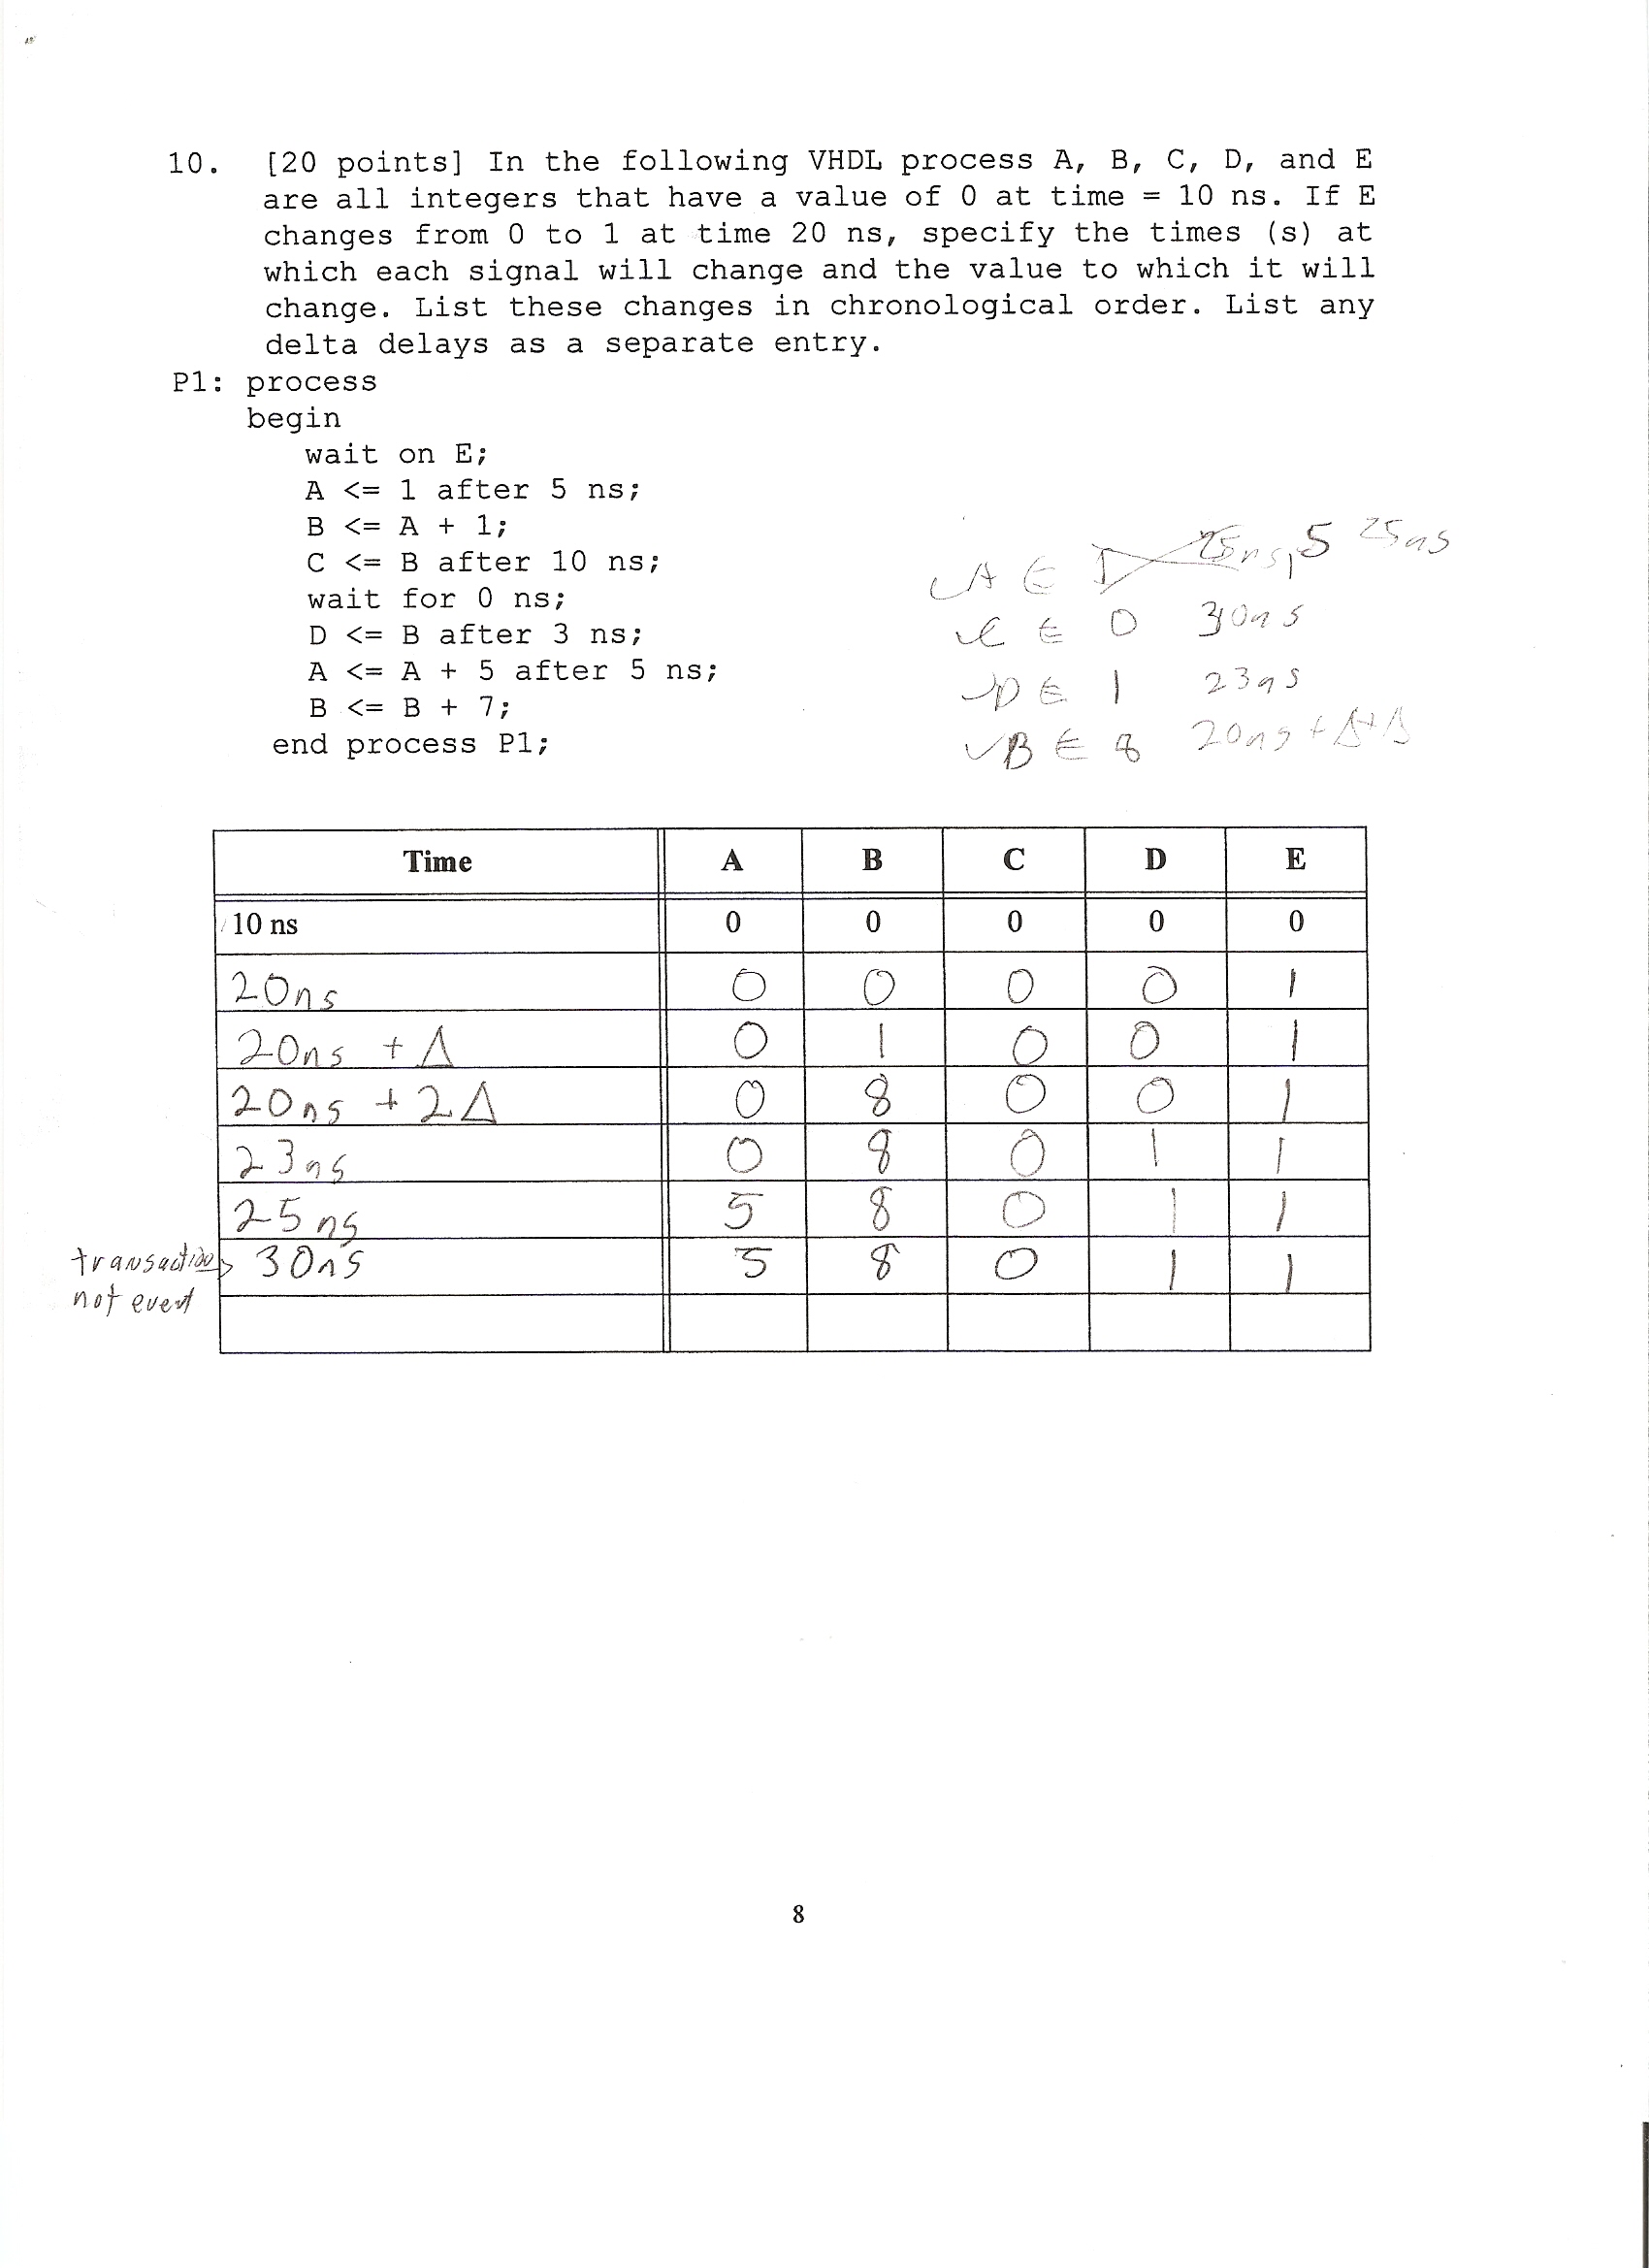 10. [20 points] In the following VHDL process A, B, C, D, and E
are all integers that have a value of 0 at time = 10 ns. If E
changes from 0 to 1 at time 20 ns, specify the times (s) at
which each signal will change and the value to which it will
change. List these changes in chronological order. List any
delta delays as a separate entry.
P1: process
begin
wait on E;
A <= 1 after 5 ns;
B <= A + 1;
C <= B after 10 ns;
wait for 0 ns;
D <= B after 3 ns;
A <= A + 5 after 5 ns;
B <= B + 7;
end process P1;
A ∈ 25ns, 5 25ns
C ∈ 0 30ns
D ∈ 1 23ns
B ∈ 8 20ns + Δ + Δ
Time A B C D E
10 ns 0 0 0 0 0
20ns 0 0 0 0 1
20ns + Δ 0 1 0 0 1
20ns + 2Δ 0 8 0 0 1
23ns 0 8 0 1 1
25ns 5 8 0 1 1
transaction 30ns 5 8 0 1 1
not event
8